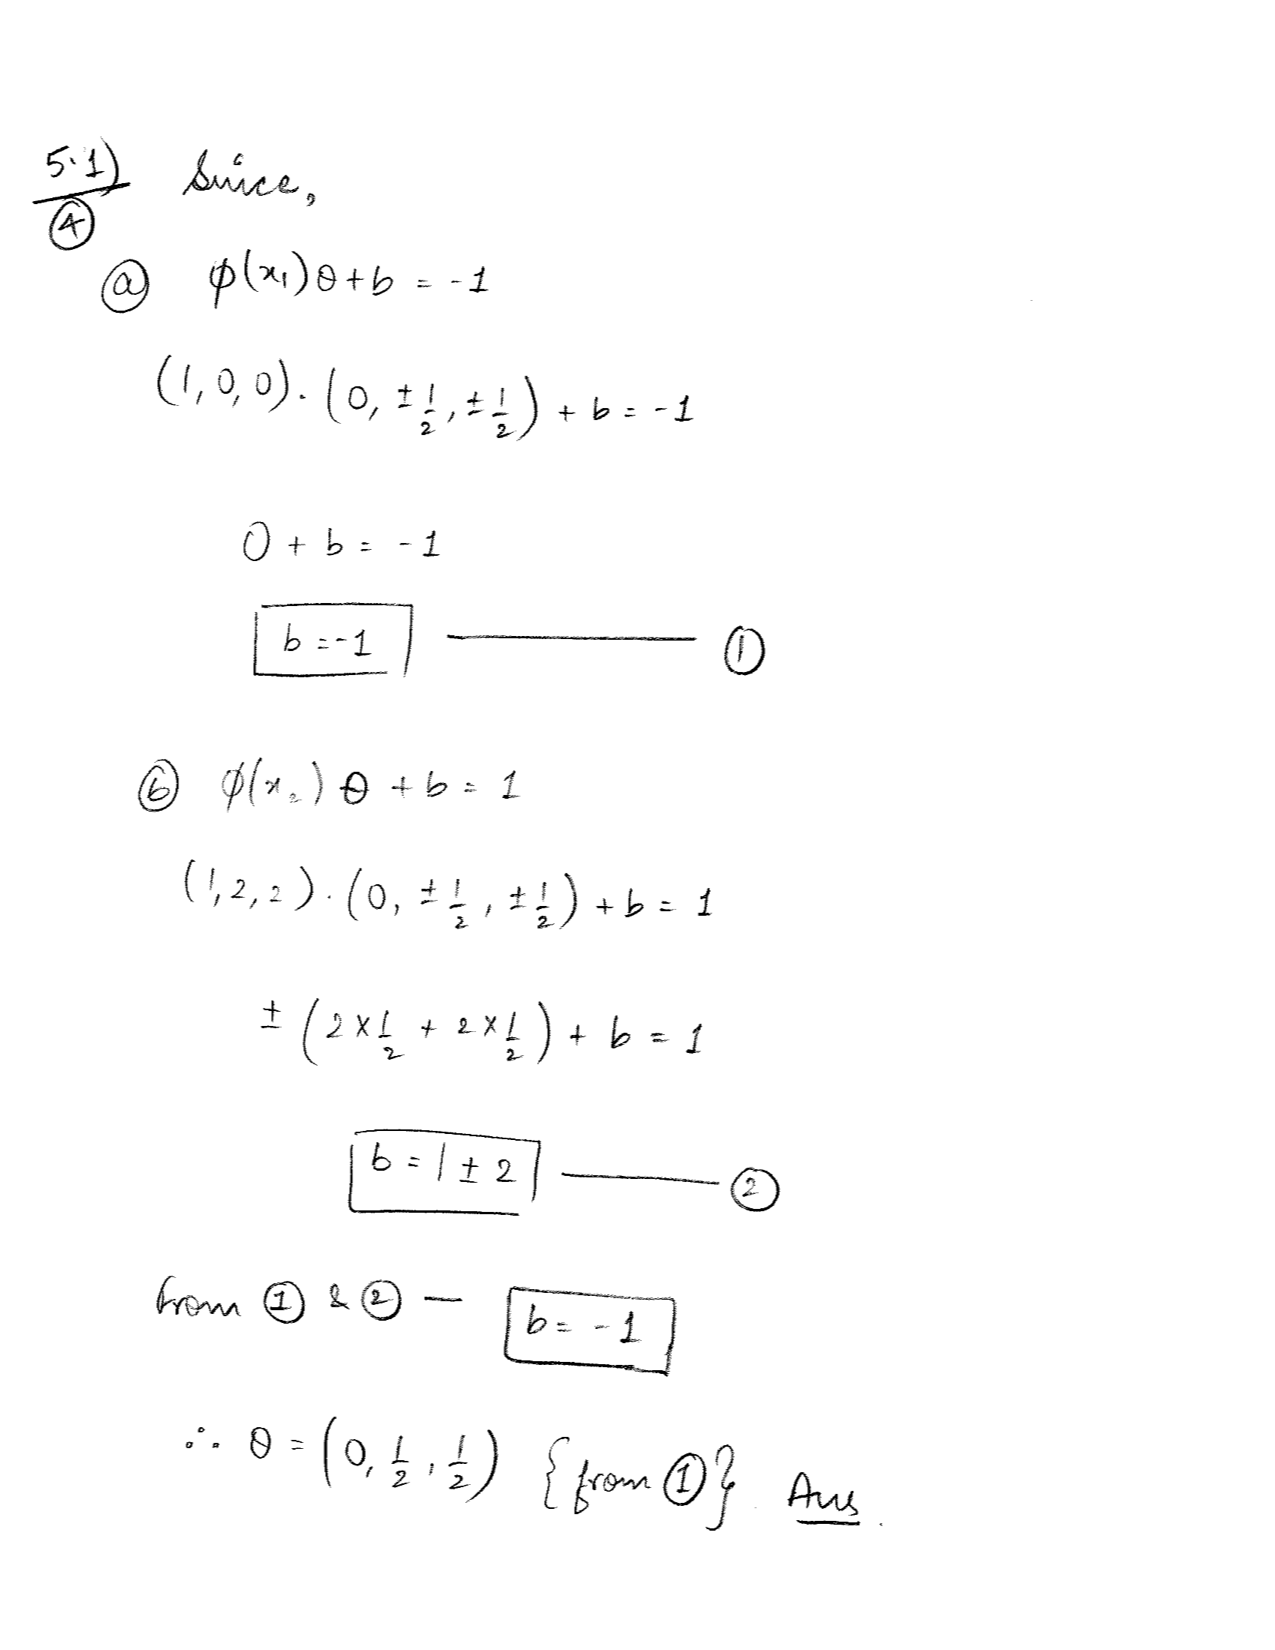 5.1) Since,
④
ⓐ φ(x₁)θ+b = -1
(1,0,0). (0, ±1/2, ±1/2) + b = -1
0 + b = -1
b = -1 ——— ①
ⓑ φ(x₂)θ + b = 1
(1,2,2). (0, ±1/2, ±1/2) + b = 1
± (2×1/2 + 2×1/2) + b = 1
b = 1 ± 2 ——— ②
from ① & ② — b = -1
∴ θ = (0, 1/2, 1/2) {from ①} Ans.